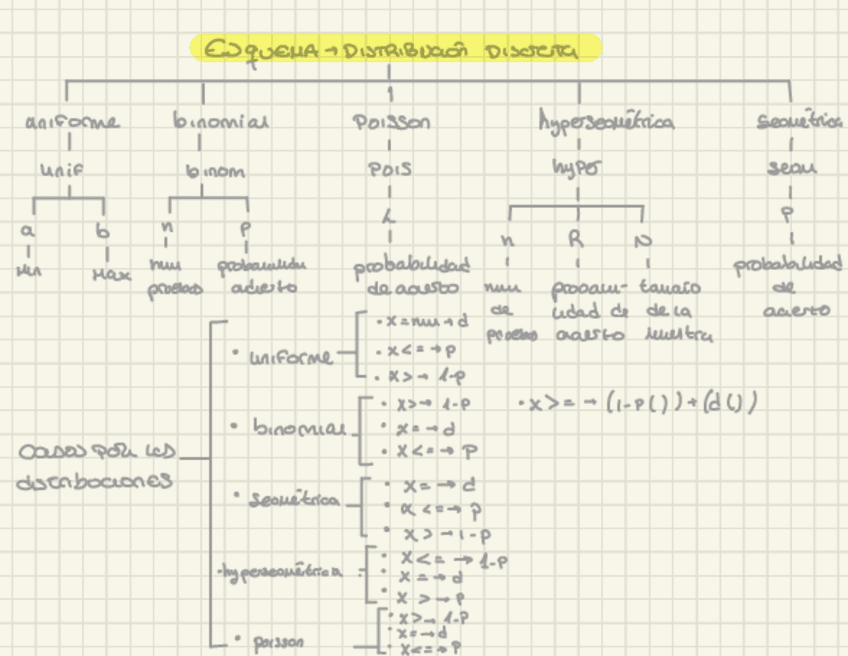 ESQUEMA → DISTRIBUCIÓN DISCRETA
uniforme binomial Poisson hypergeométrica geométrica
unif binom POIS hyper geom
a b n p λ n R N p
Min Max num pruebas probabilidad acierto probabilidad de acierto num de pruebas probabilidad de acierto tamaño de la muestra probabilidad de acierto
CASOS POR LAS
distribuciones
• uniforme
• x = num → d
• x <= → p
• x > → 1-p
• binomial
• x > → 1-p
• x = → d
• x <= → p
• x >= → (1-p()) + (d())
• geométrica
• x = → d
• x <= → p
• x > → 1-p
• hypergeométrica
• x <= → 1-p
• x = → d
• x > → p
• poisson
• x > → 1-p
• x = → d
• x <= → p